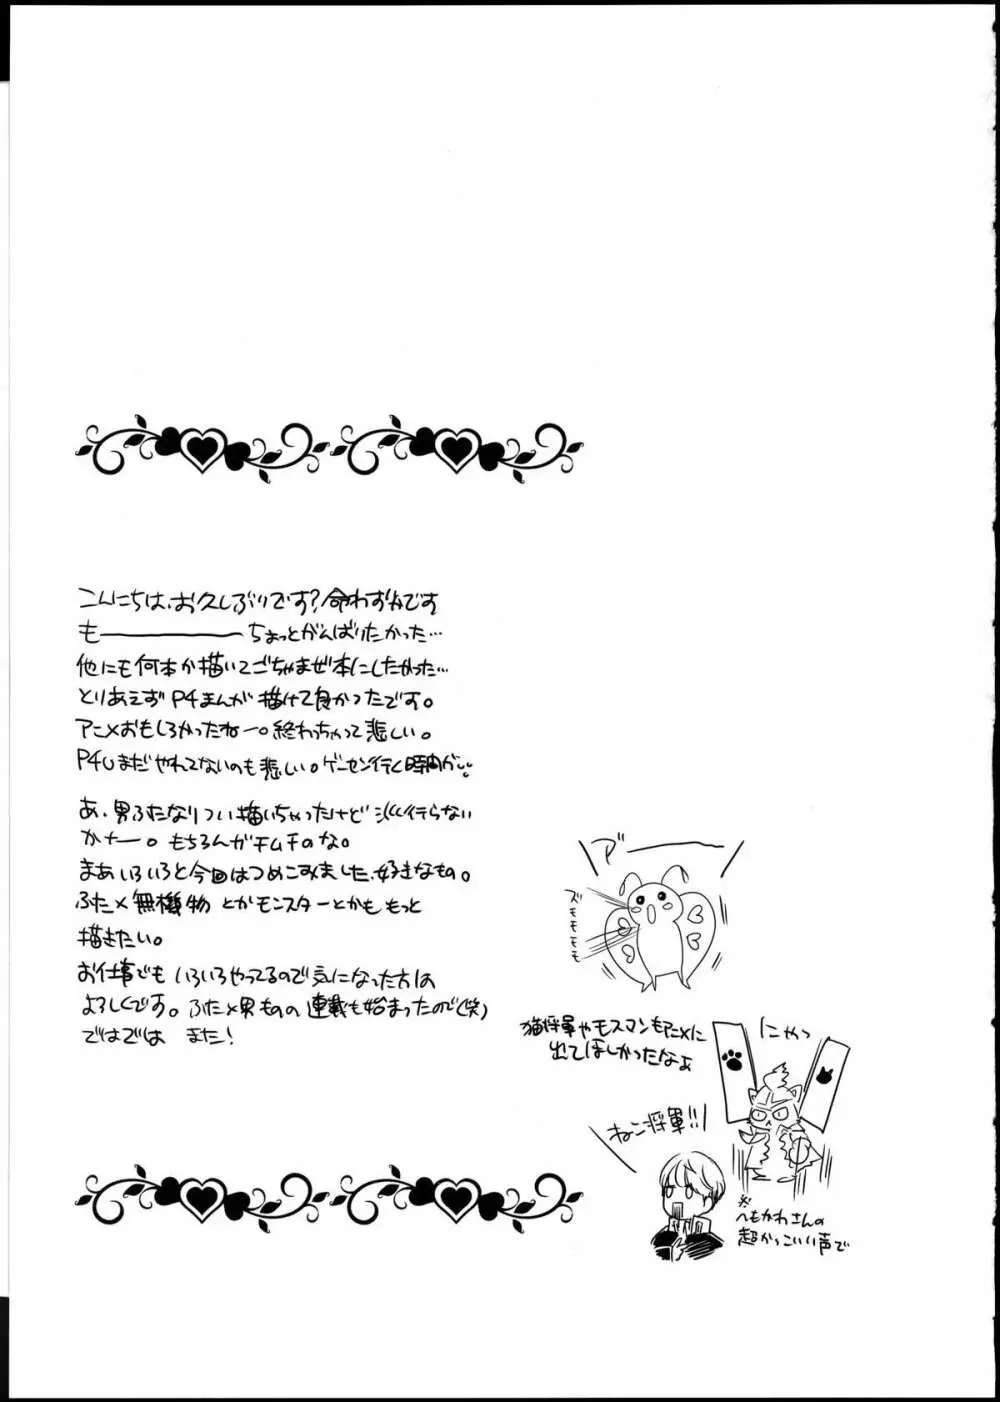 こんにちは、お久しぶりです?命わずみです
も――――――ちょっとがんばりたかった…
他にも何本か描いてごちゃまぜ本にしたかった…
とりあえずP4まんが描けて良かったです。
アニメおもしろかったねー。終わっちゃって悲しい。
P4Uまだやれてないのも悲しい。ゲーセン行く時間が…
あ、男ふたなりつい描いちゃったけど 行らない
かなー。もちろんガチムチのな。
まあいろいろと今回はつめこみました、好きなもの。
ふた×無機物とかモンスターとかももっと
描きたい。
お仕事でもいろいろやってるので気になった方は
よろしくです。ふた×男ものの連載も始まったので(笑)
ではでは また!
ア゛ーーー
ズモモモモ
猫将軍やモスマンもアニメに
出てほしかったなぁ
にゃっ
ねこ将軍!!
※
へもかわさんの
超かっこいい声で